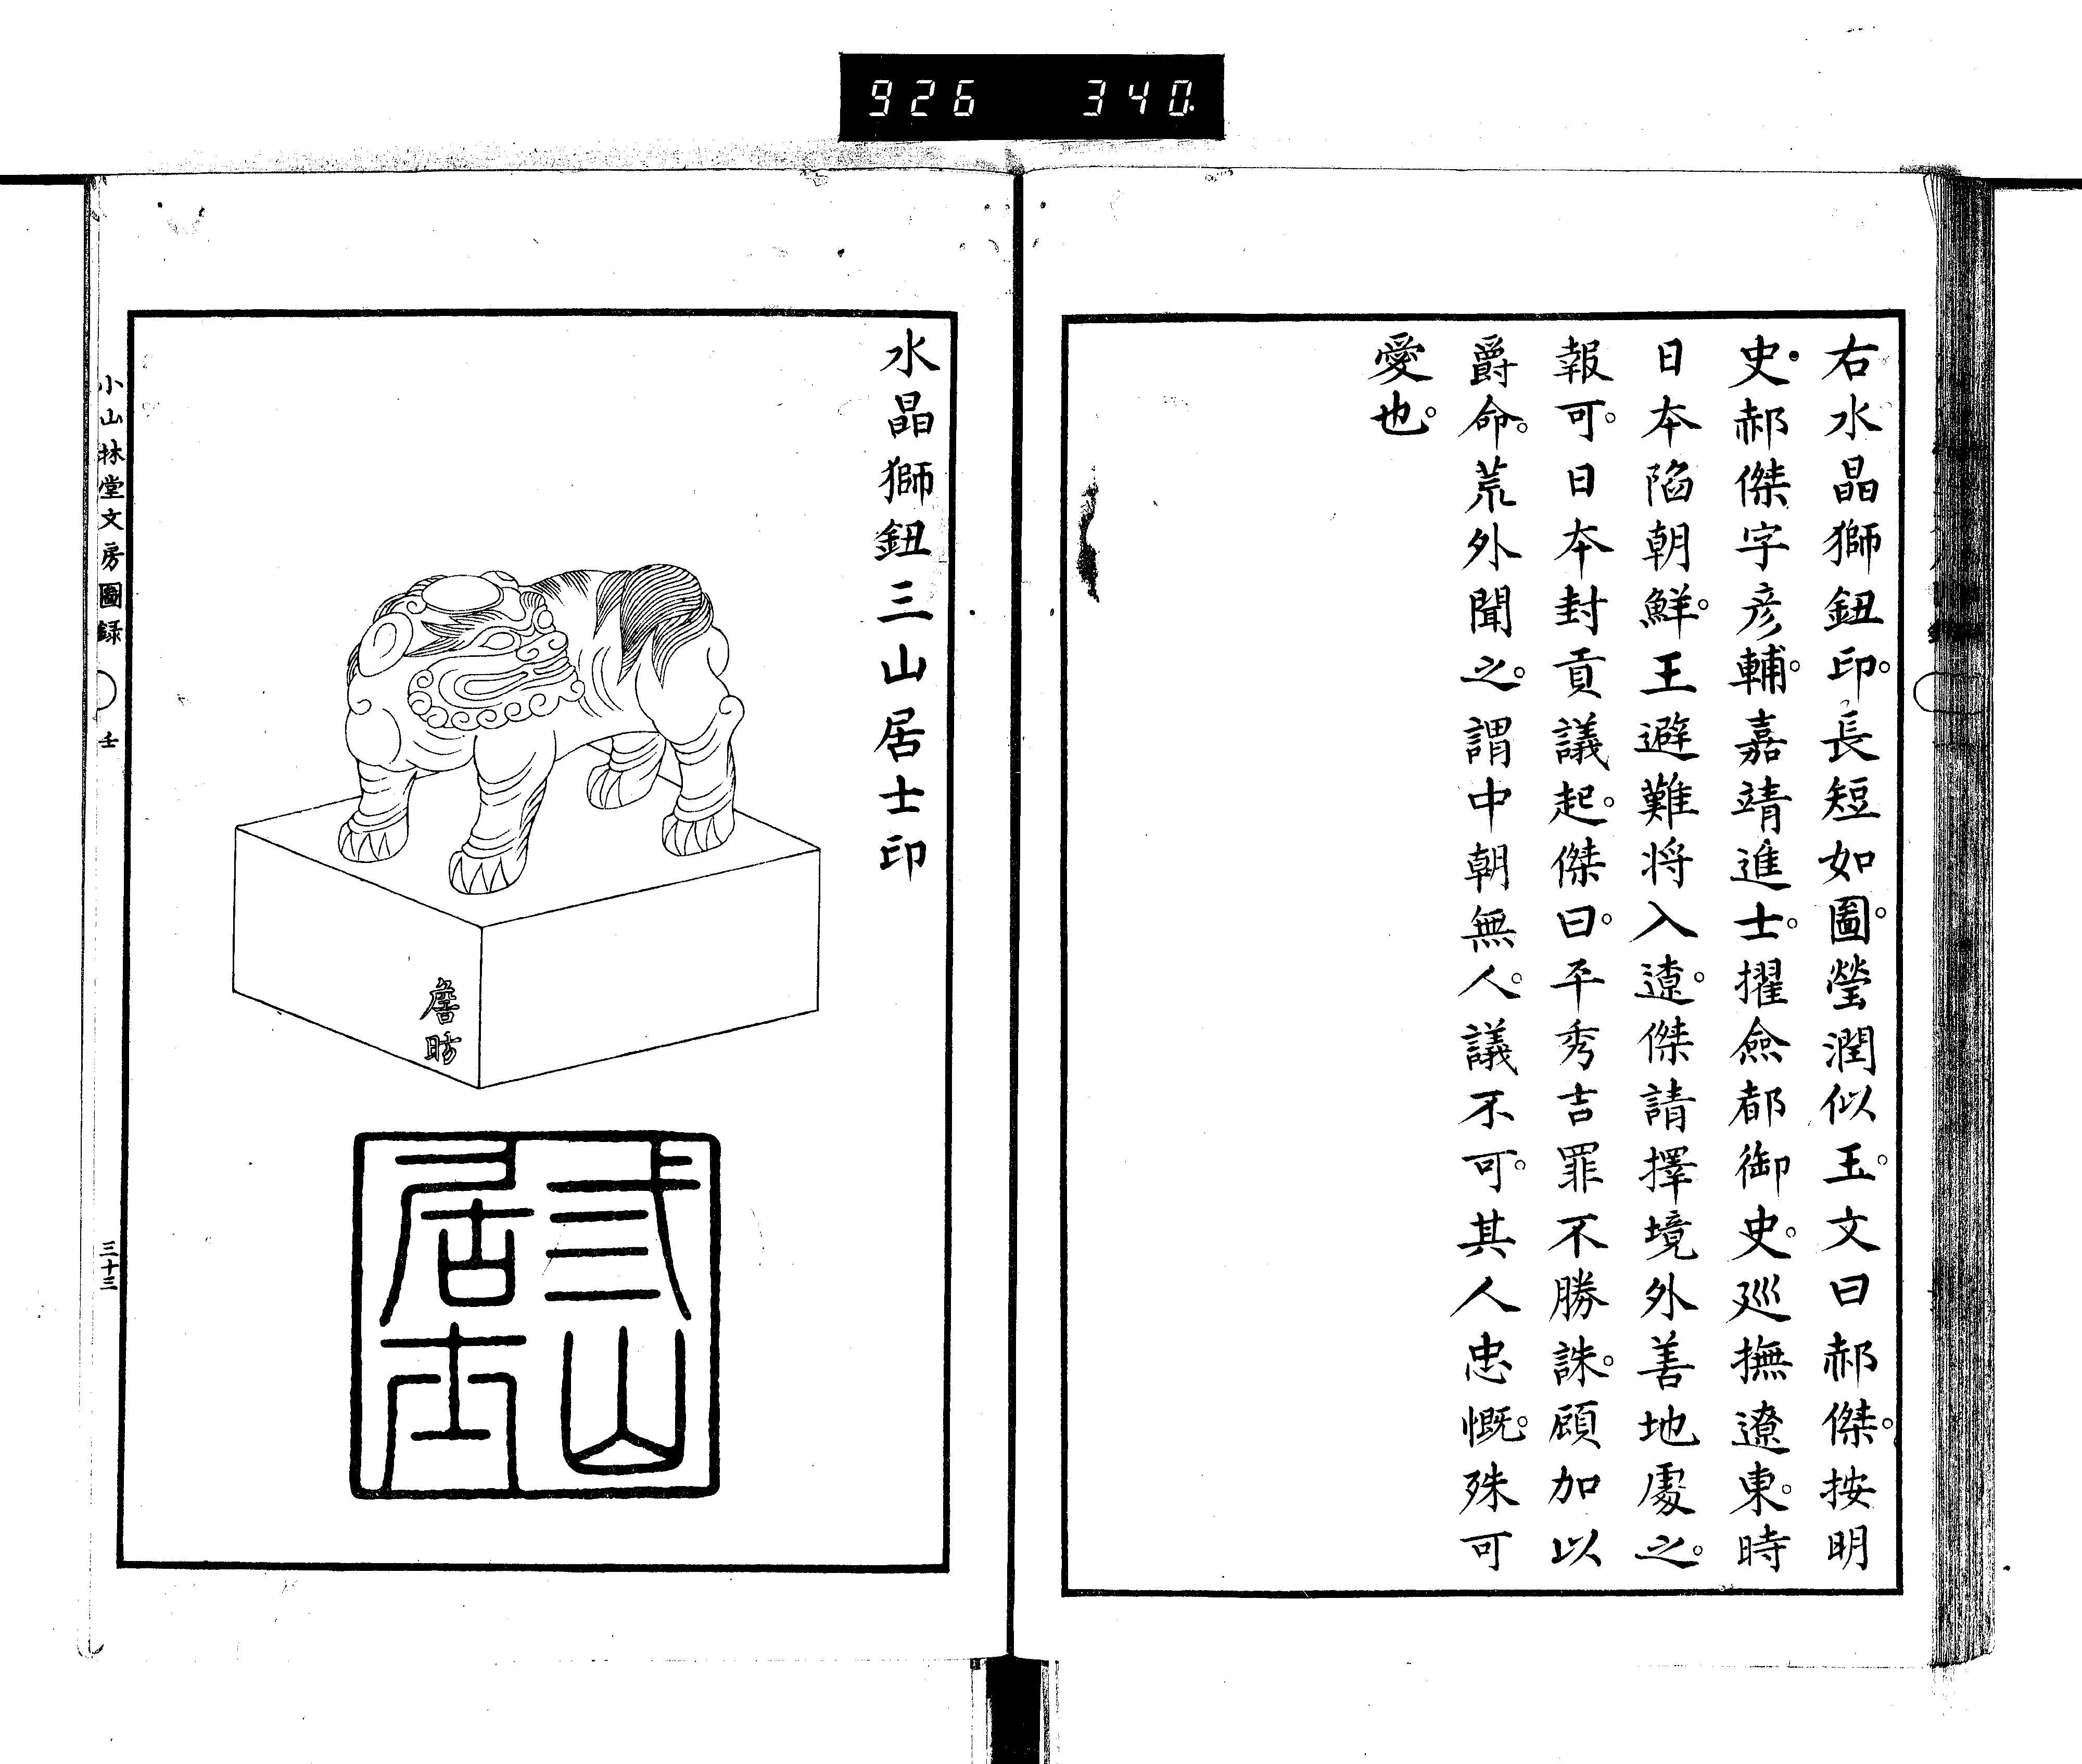 926 340.
右水晶獅鈕印。長短如圖。瑩潤似玉。文曰郝傑。按明
史。郝傑字彦輔。嘉靖進士。擢僉都御史。巡撫遼東。時
日本陷朝鮮。王避難将入遼。傑請擇境外善地處之。
報可。日本封貢議起。傑曰。平秀吉罪不勝誅。顧加以
爵命。荒外聞之。謂中朝無人。議不可。其人忠慨。殊可
愛也。
水晶獅鈕三山居士印
詹昉
弎山
居士
小山林堂文房圖録 壬 三十三